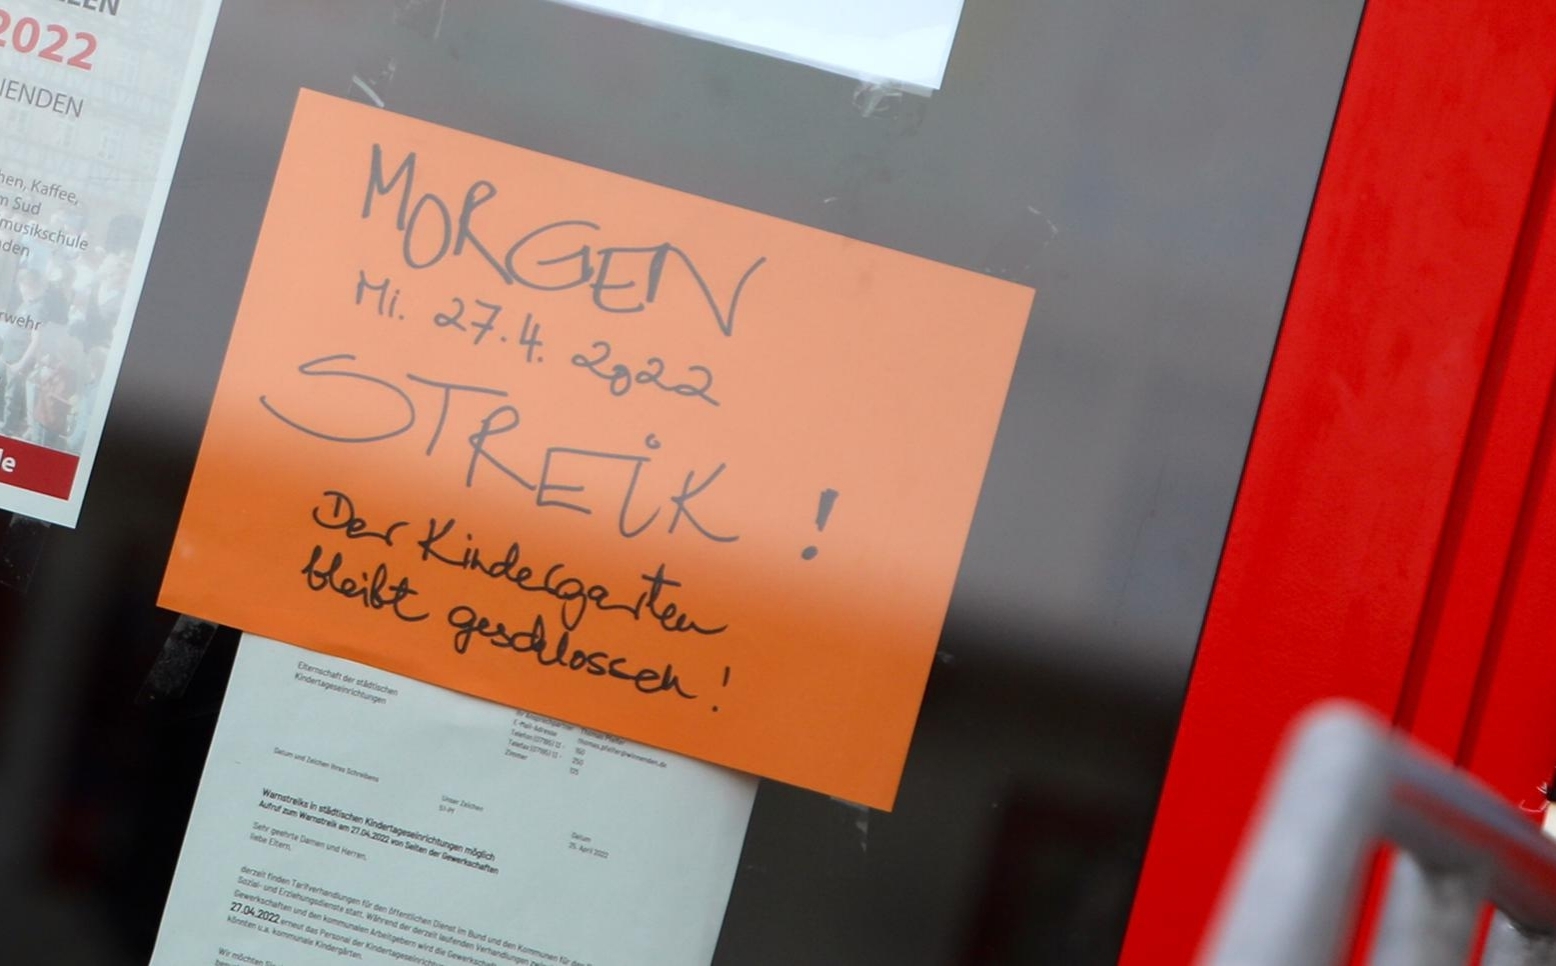 2022
ENDEN
Kaffee,
m Sud
musikschule
den
rwehr
MORGEN
Mi. 27.4. 2022
STREiK !
Der Kindergarten
bleibt geschlossen!
Elternschaft der städtischen
Kindertageseinrichtungen
E-Mail-Adresse thomas.pfeifer@winnenden.de
Zimmer
Datum und Zeichen Ihres Schreibens
Unser Zeichen
Datum
25. April 2022
Warnstreiks in städtischen Kindertageseinrichtungen möglich
Aufruf zum Warnstreik am 27.04.2022 von Seiten der Gewerkschaften
Sehr geehrte Damen und Herren,
liebe Eltern,
derzeit finden Tarifverhandlungen für den öffentlichen Dienst im Bund und den Kommunen für den
Sozial- und Erziehungsdienste statt. Während der derzeit laufenden Verhandlungen
Gewerkschaften und den kommunalen Arbeitgebern wird die
27.04.2022 erneut das Personal der
könnten u.a. kommunale Kindergärten.
Wir möchten